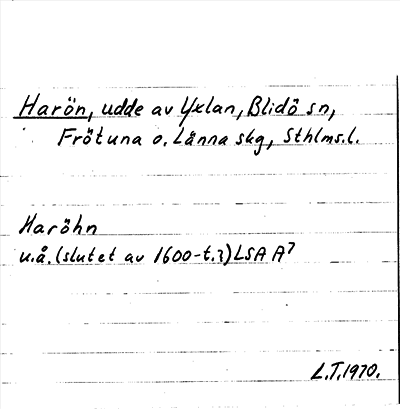 Harön, udde av Yxlan, Blidö sn,
Frötuna o. Länna skg, Sthlms.l.
Haröhn
u.å. (slutet av 1600-t.?) LSA A7
L.T. 1970.